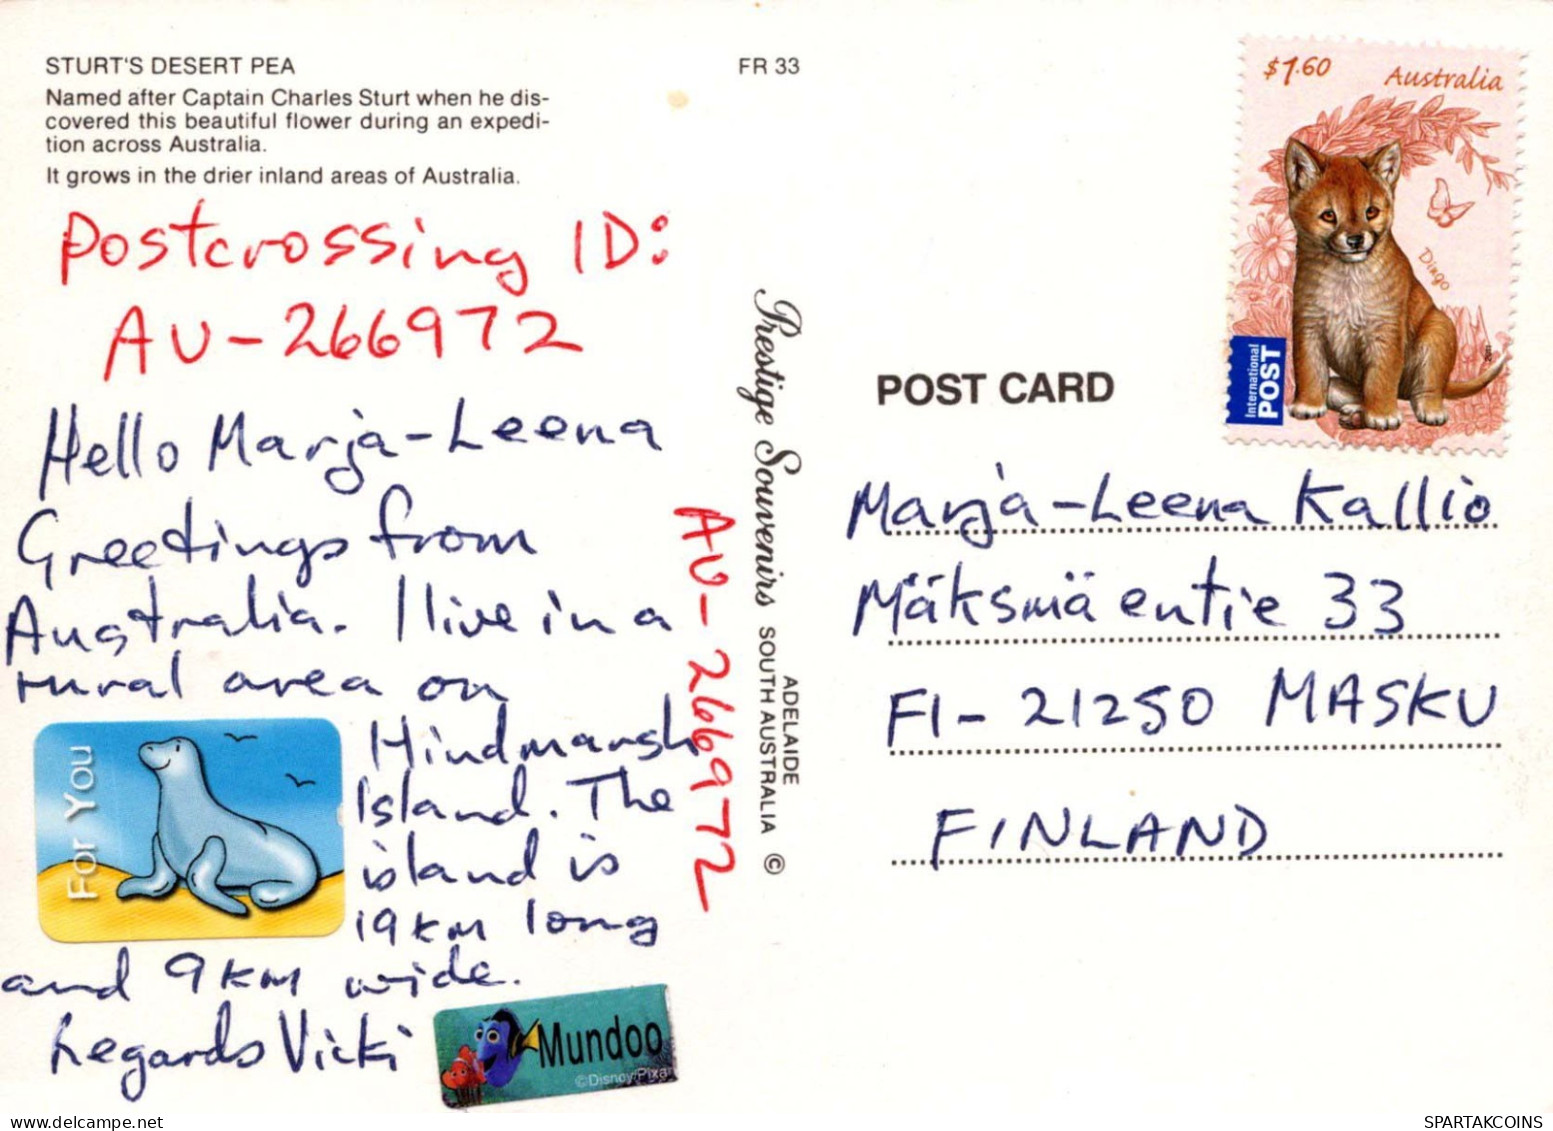 STURT'S DESERT PEA
Named after Captain Charles Sturt when he dis-
covered this beautiful flower during an expedi-
tion across Australia.
It grows in the drier inland areas of Australia.
FR 33
Postcrossing ID:
AU-266972
Hello Marja-Leena
Greetings from
Australia. I live in a
rural area on
Hindmarsh
Island. The
island is
19km long
and 9km wide.
Regards Vicki
For You
Mundoo
©Disney/Pixar
AU-266972
Prestige Souvenirs
ADELAIDE
SOUTH AUSTRALIA ©
POST CARD
$1.60
Australia
Dingo
International
POST
2011
Marja-Leena Kallio
Mäksmäentie 33
FI-21250 MASKU
FINLAND
SPARTAKCOINS